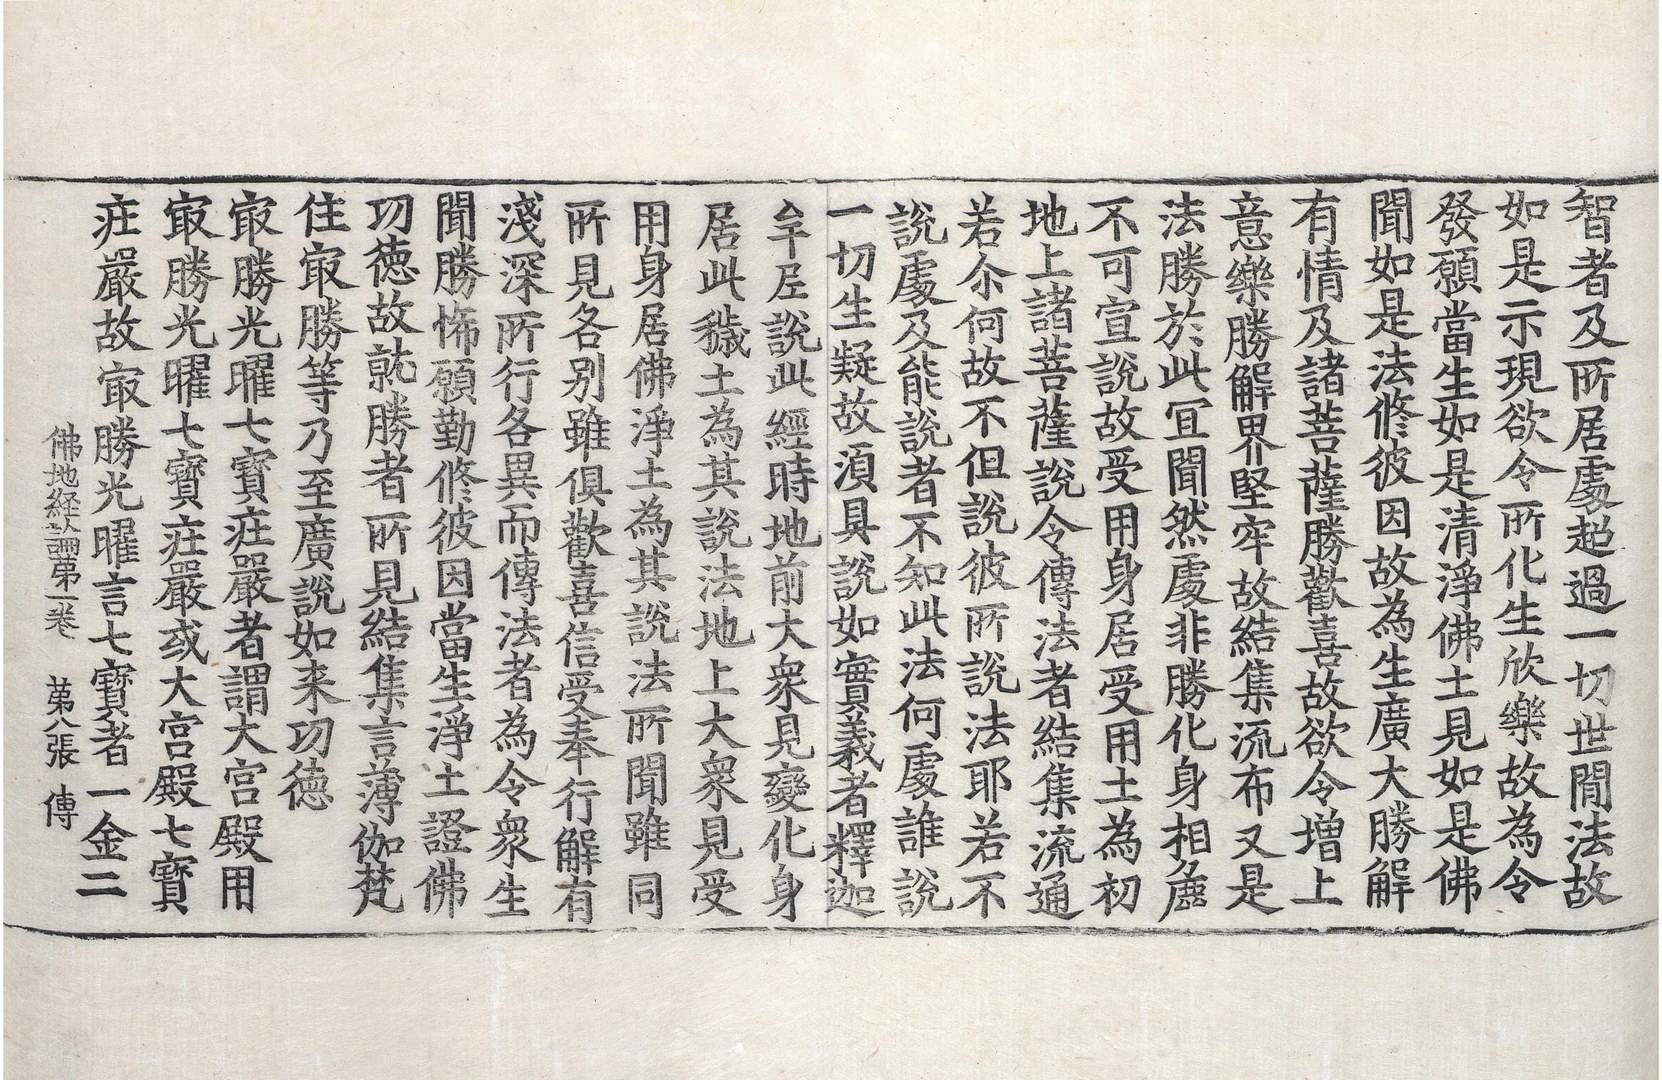 智者及所居處超過一切世間法故
如是示現欲令所化生欣樂故為令
發願當生如是清淨佛土見如是佛
聞如是法修彼因故為生廣大勝解
有情及諸菩薩勝歡喜故欲令增上
意樂勝解界堅牢故結集流布又是
法勝於此冝聞然處非勝化身相麁
不可宣說故受用身居受用土為初
地上諸菩薩說令傳法者結集流通
若尒何故不但說彼所說法耶若不
說處及能說者不知此法何處誰說
一切生疑故湏具說如實義者釋迦
牟尼說此經時地前大衆見變化身
居此穢土為其說法地上大衆見受
用身居佛淨土為其說法所聞雖同
所見各別雖俱歡喜信受奉行解有
淺深所行各異而傳法者為令衆生
聞勝怖願勤修彼因當生淨土證佛
功德故就勝者所見結集言薄伽梵
住㝡勝等乃至廣說如来功德
㝡勝光曜七寶庄嚴者謂大宮殿用
㝡勝光曜七寶庄嚴或大宮殿七寶
庄嚴故㝡勝光曜言七寶者一金二
佛地経論第一卷 第八張 傳